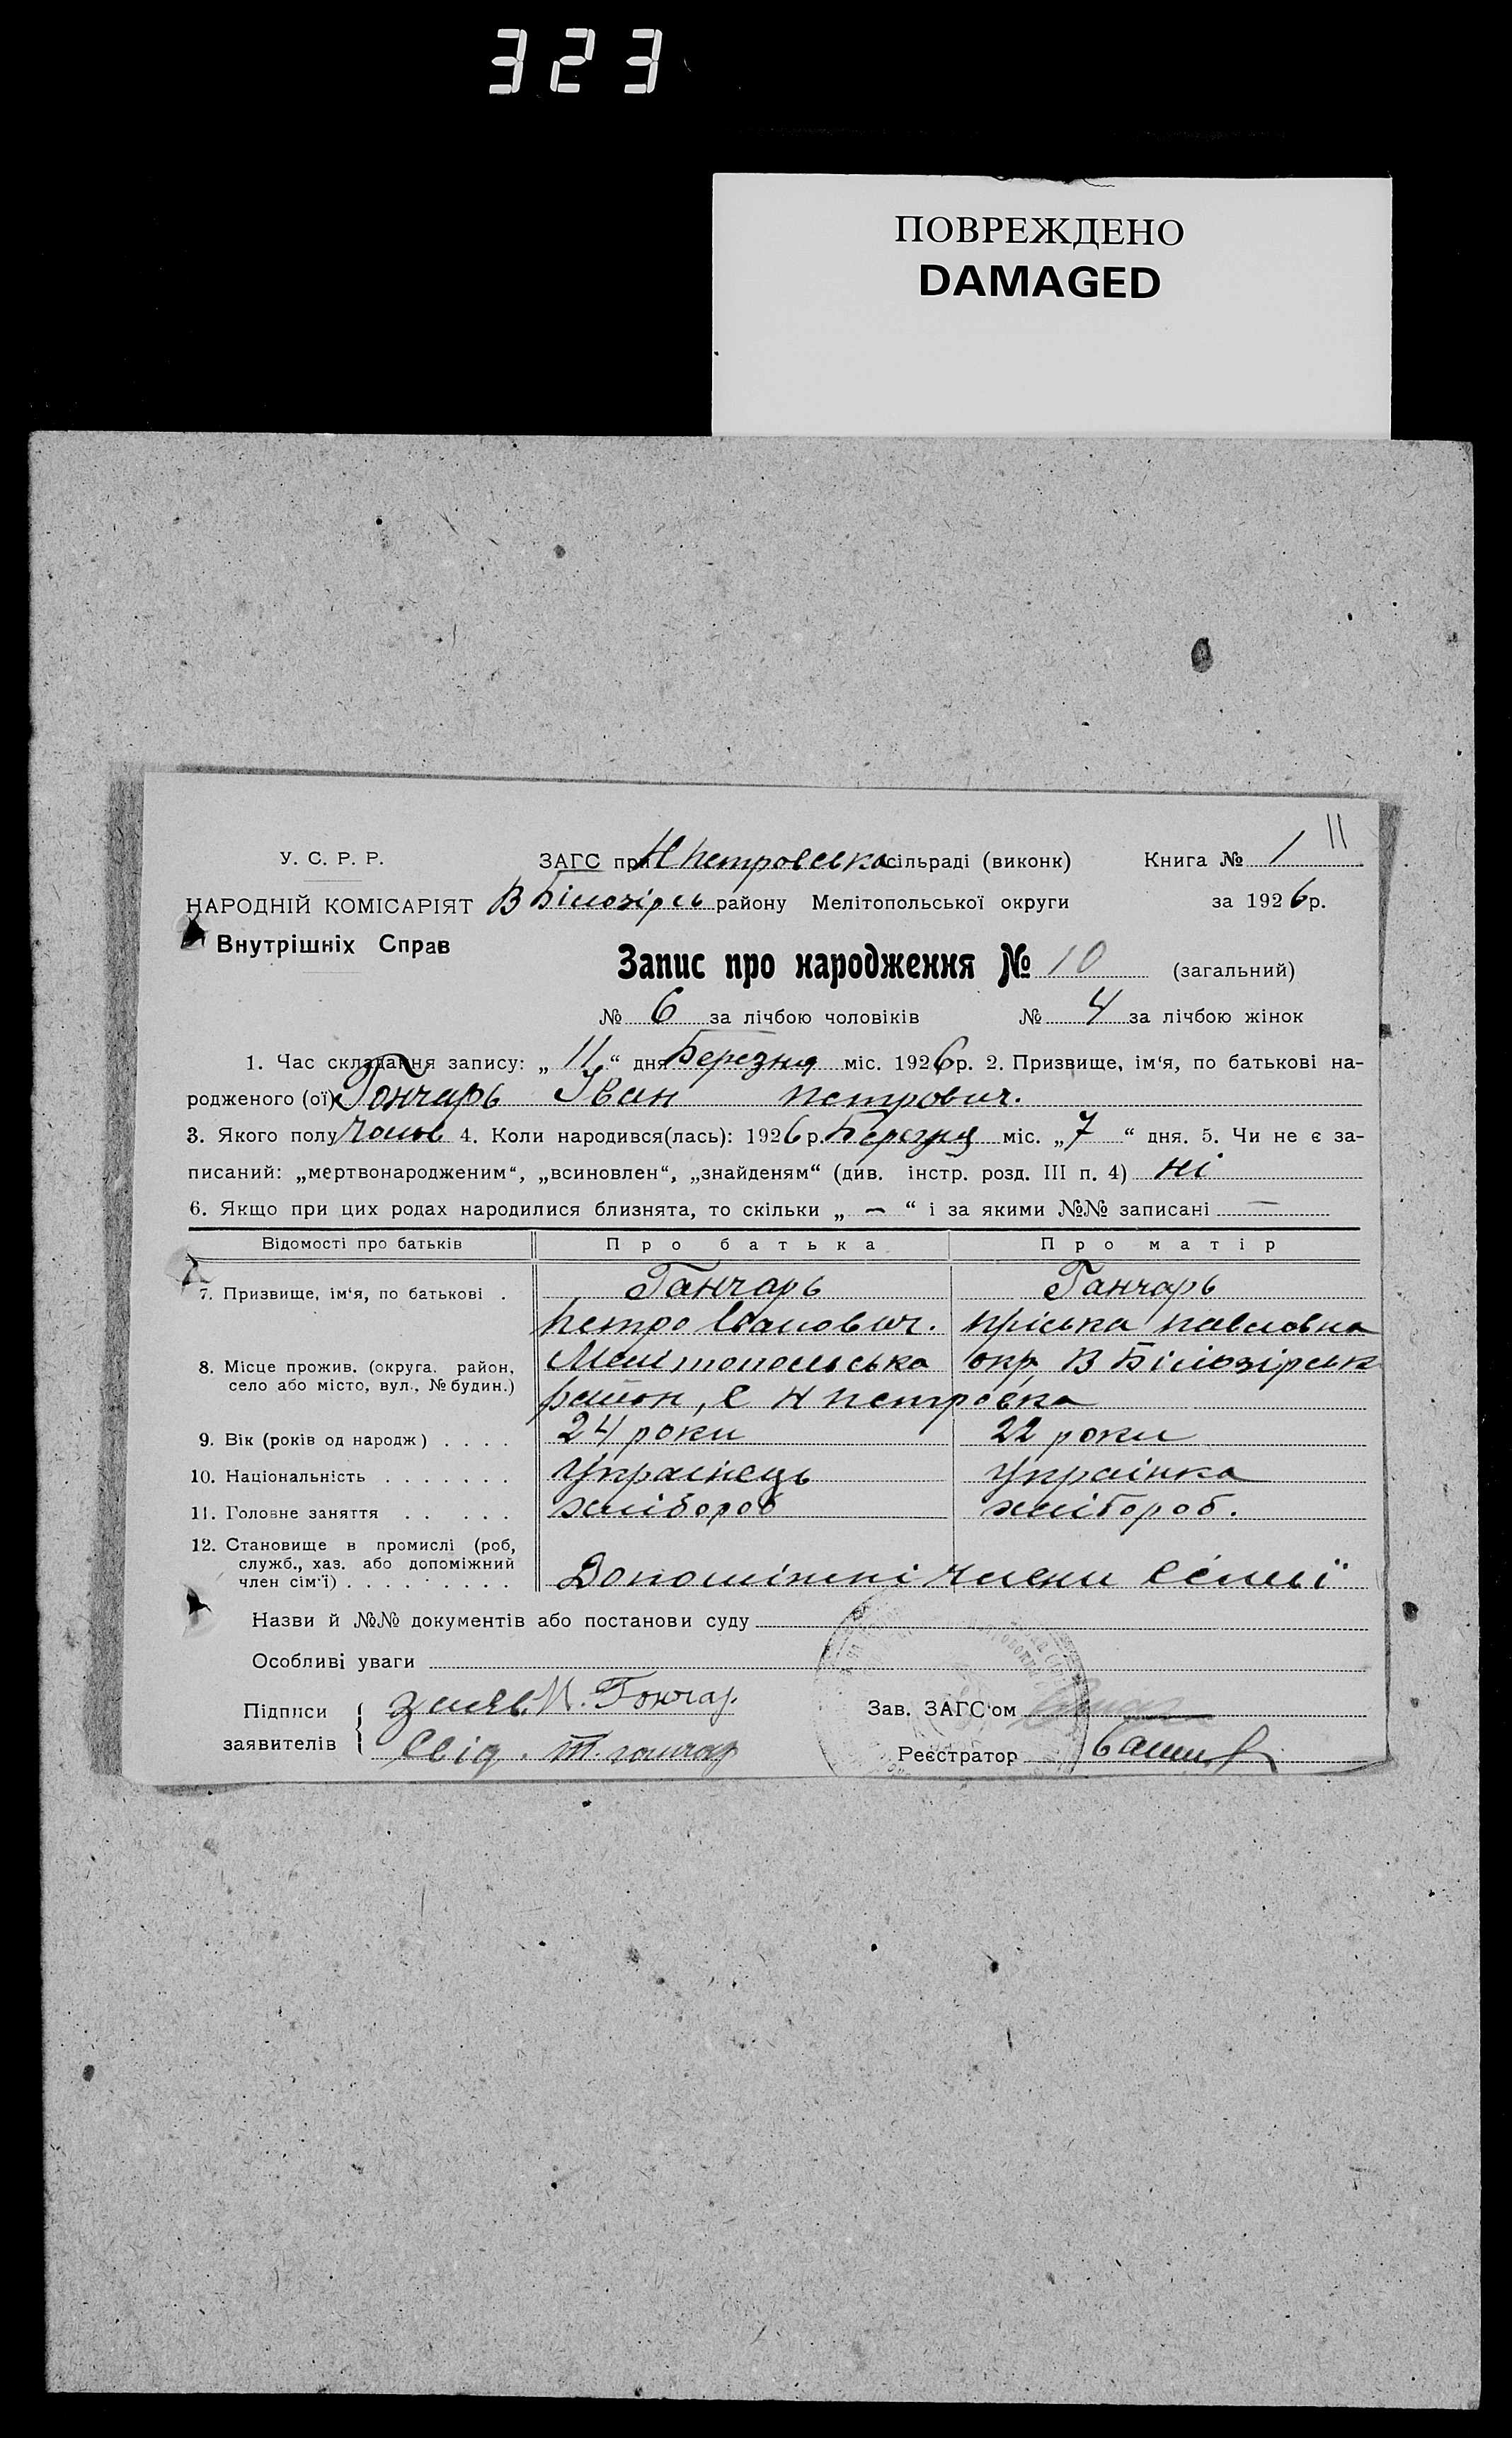 323
ПОВРЕЖДЕНО
DAMAGED
11
У. С. Р. Р. ЗАГС при Н Петровська сільраді (виконк) Книга № 1
НАРОДНІЙ КОМІСАРІЯТ В Білозірсь району Мелітопольської округи за 1926р.
Внутрішніх Справ
Запис про народження № 10 (загальний)
№ 6 за лічбою чоловіків № 4 за лічбою жінок
1. Час складання запису: „ 11 “ дня Березня міс. 1926р. 2. Призвище, ім‘я, по батькові на-
родженого (ої) Гончарь Іван Петрович.
3. Якого полу Чолов 4. Коли народився(лась): 1926р. Березня міс. „7 “ дня. 5. Чи не є за-
писаний: „мертвонародженим“, „всиновлен“, „знайденям“ (див. інстр. розд. III п. 4) ні
6. Якщо при цих родах народилися близнята, то скільки „ — “ і за якими №№ записані —
Відомості про батьків Про батька Про матір
7. Призвище, ім‘я, по батькові . Ганчарь Ганчарь
Петро Іванович. Пріська Павловна
8. Місце прожив. (округа. район, село або місто, вул., № будин.) Мелітопольська окр, В Білозірськ
район, с Н Петровка
9. Вік (років од народж) . . . . 24 роки 22 роки
10. Національність . . . . . . . Українець Українка
11. Головне заняття . . . . . хлібороб хлібороб.
12. Становище в промислі (роб,
служб., хаз. або допоміжний
член сім‘ї) . . . . . . . . . Допоміжні члени сёмьї
Назви й №№ документів або постанови суду
Особливі уваги
Підписи заявителів Заяв. П. Гончар.
Свід. Т. гончар
Зав. ЗАГС‘ом
Реєстратор